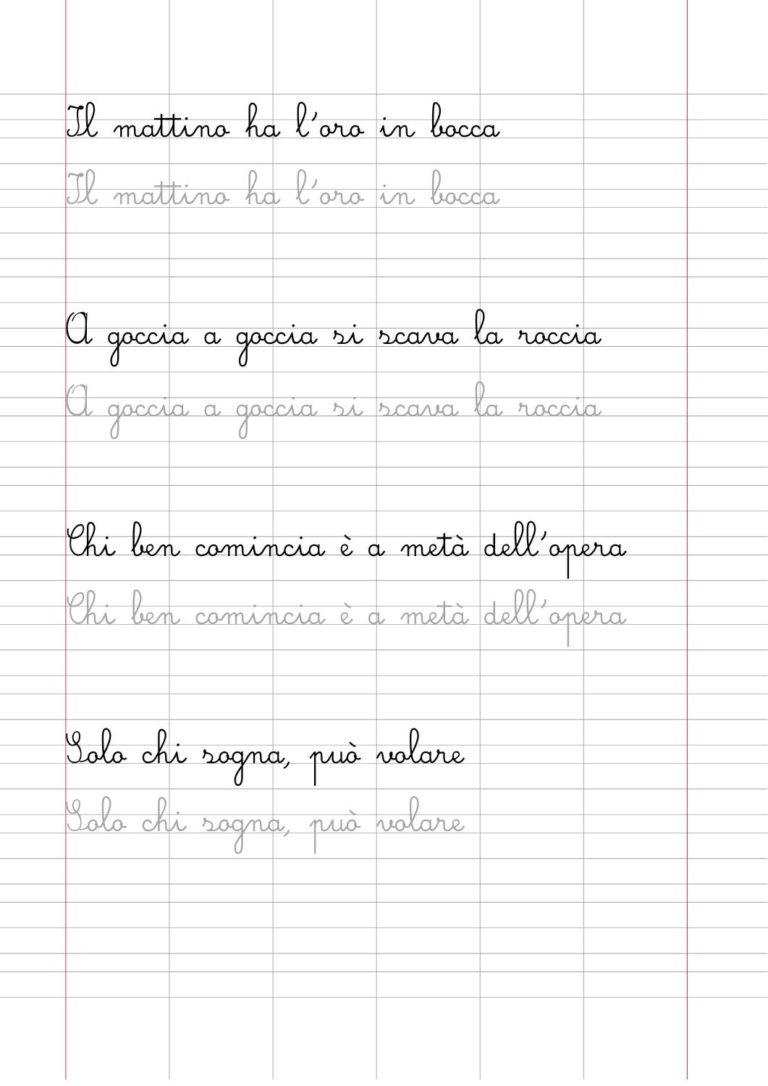 Il mattino ha l'oro in bocca
Il mattino ha l'oro in bocca
A goccia a goccia si scava la roccia
A goccia a goccia si scava la roccia
Chi ben comincia è a metà dell'opera
Chi ben comincia è a metà dell'opera
Solo chi sogna, può volare
Solo chi sogna, può volare